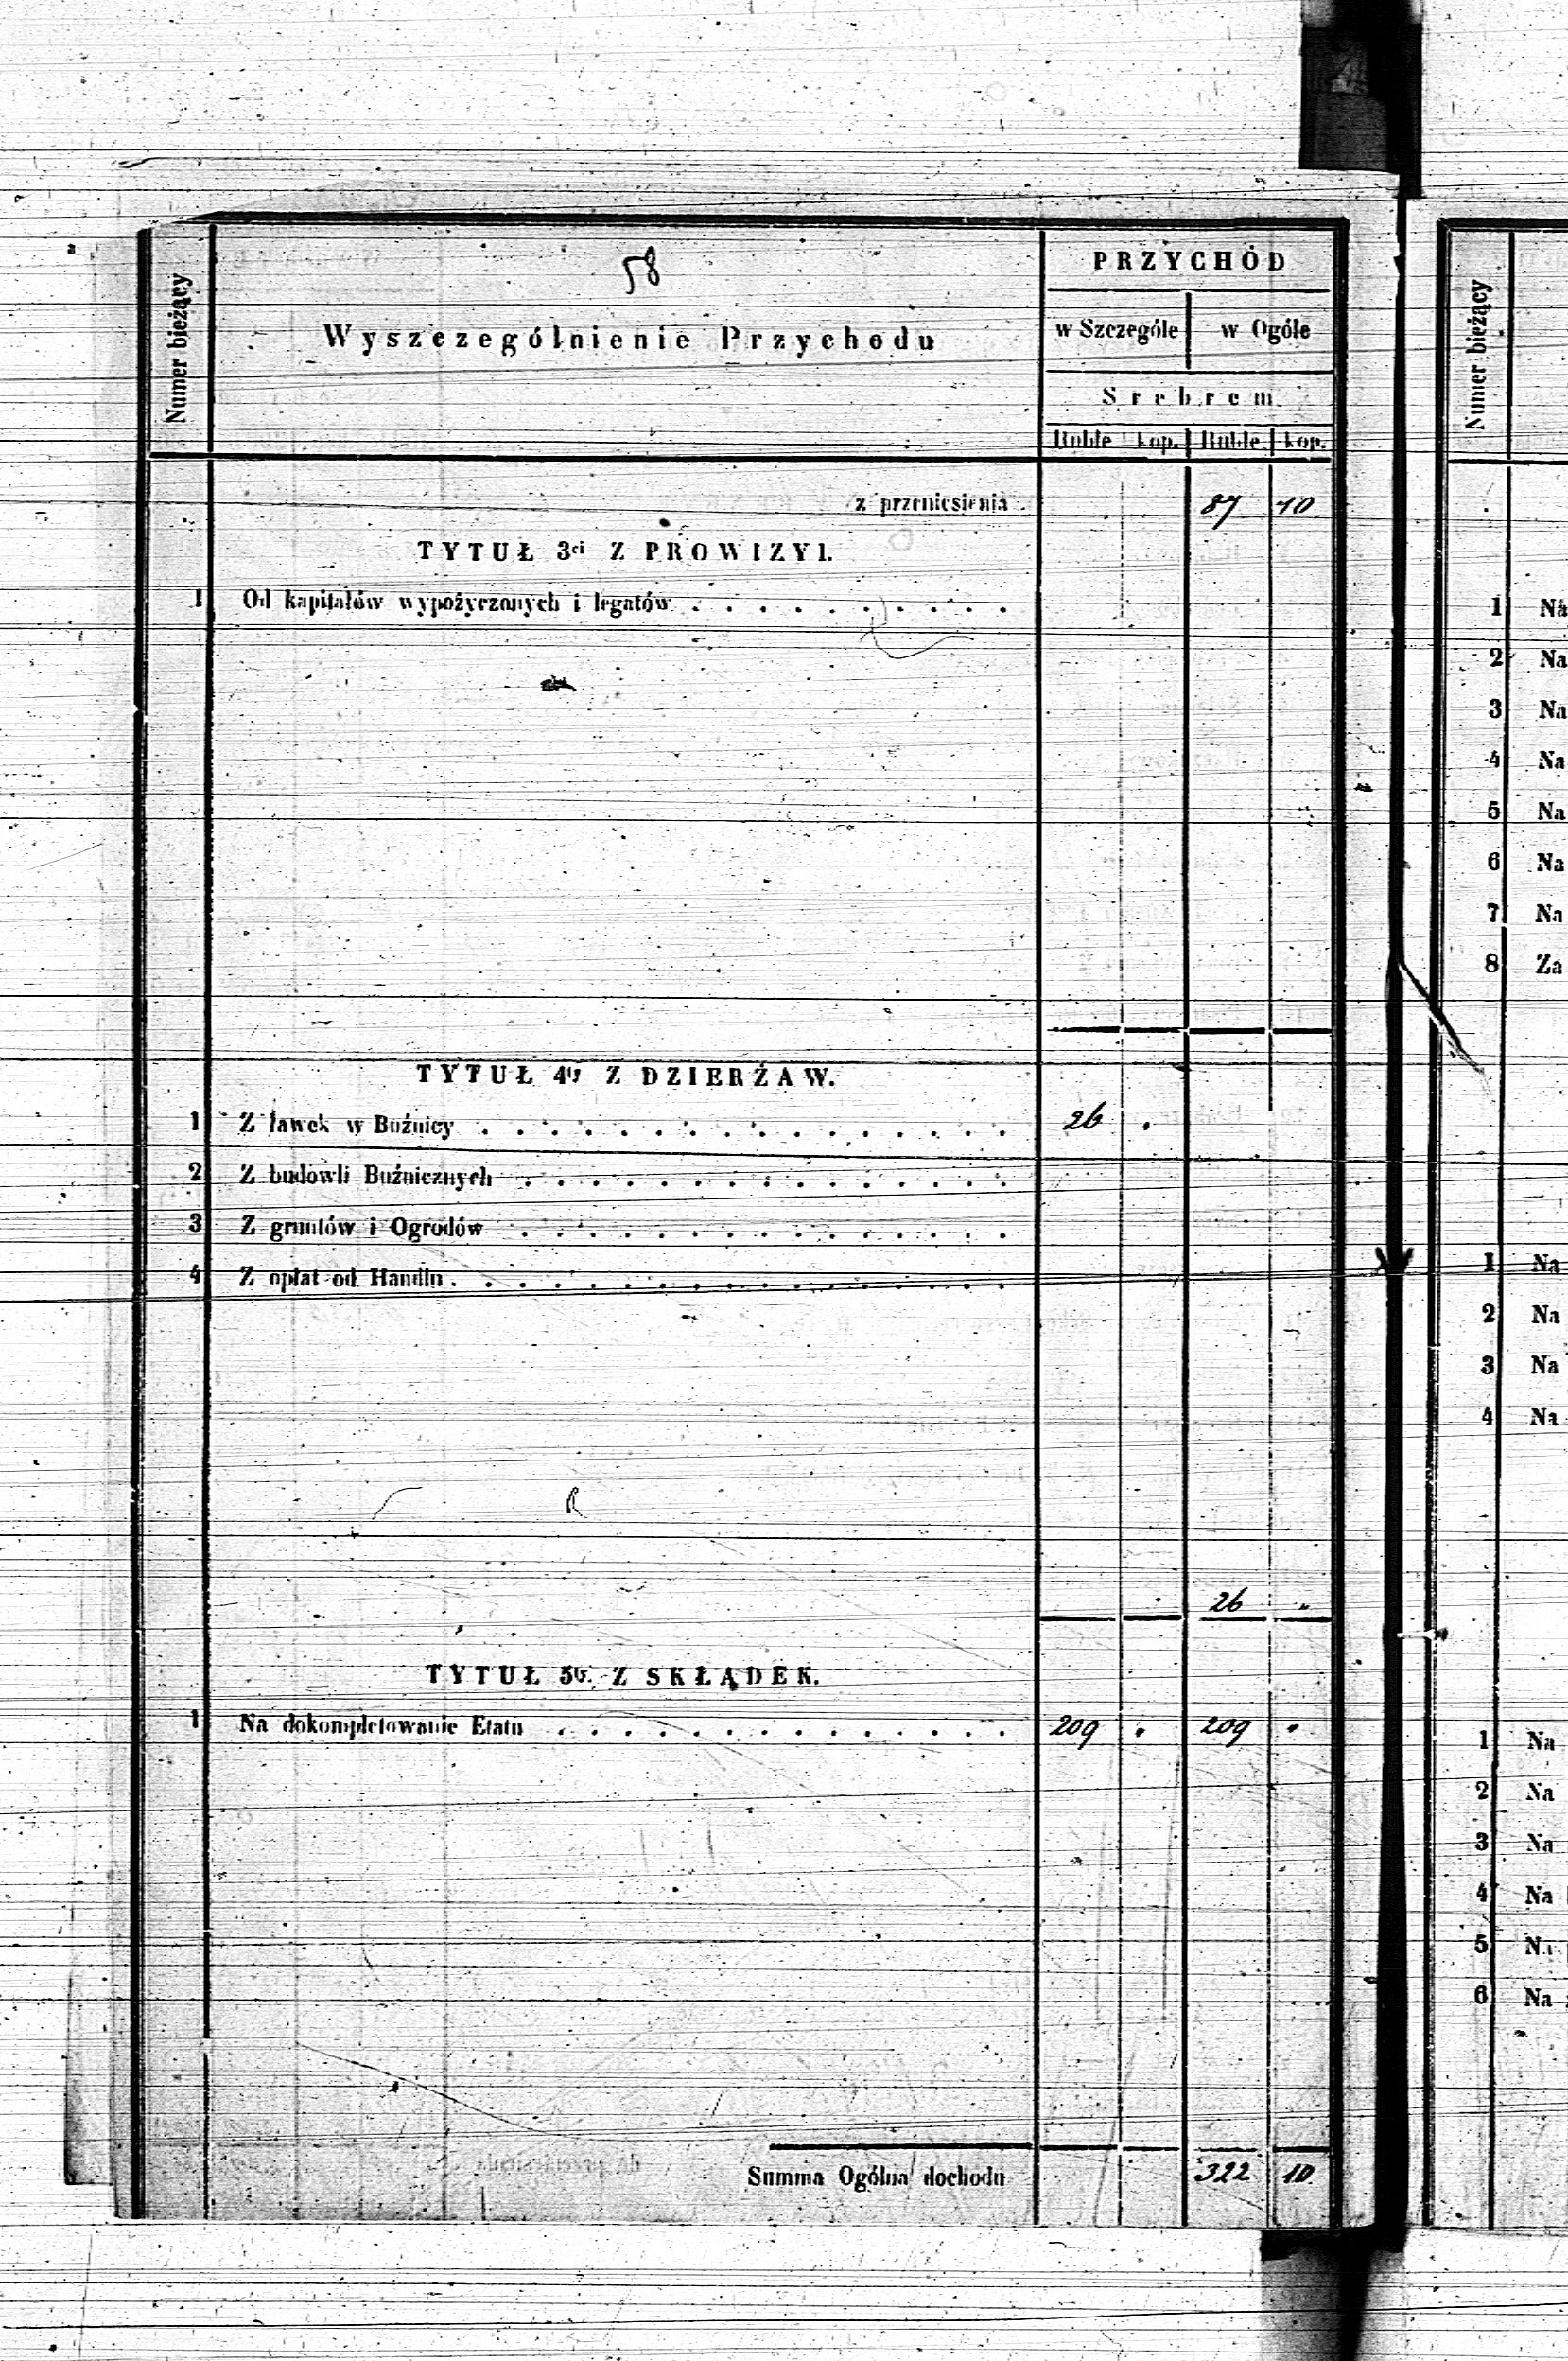 58
Numer bieżący
Wyszczególnienie Przychodu
PRZYCHÓD
w Szczególe w Ogóle
Srebrem
Ruble kop. Ruble kop.
z przeniesienia 87 10
TYTUŁ 3ci Z PROWIZYI.
1 Od kapitałów wypożyczonych i legatów
TYTUŁ 4ty Z DZIERŻAW.
1 Z ławek w Buźnicy 26 .
2 Z budowli Buźnicznych
3 Z gruntów i Ogrodów
4 Z opłat od Handlu
26 "
TYTUŁ 5ty. Z SKŁĄDEK.
1 Na dokompletowanie Etatu 209 " 209 "
Summa Ogólna dochodu 322 10
Numer bieżący
1 Na
2 Na
3 Na
4 Na
5 Na
6 Na
7 Na
8 Za
1 Na
2 Na
3 Na
4 Na
1 Na
2 Na
3 Na
4 Na
5 Na
6 Na